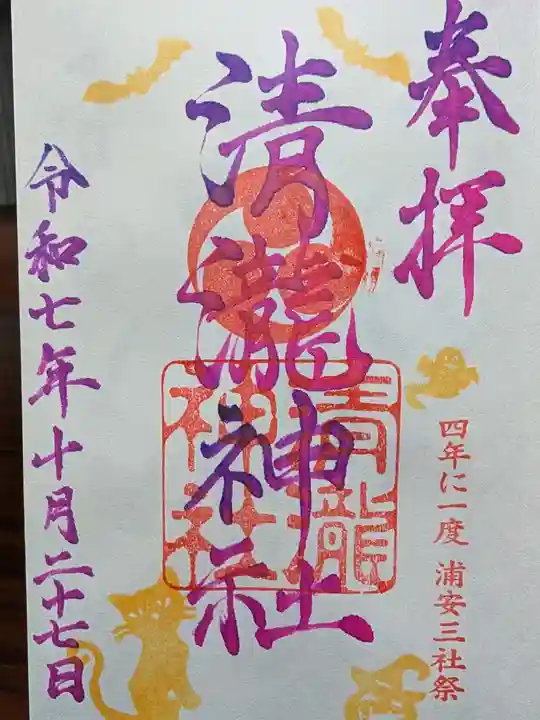 奉拝
四年に一度 浦安三社祭
清瀧神社
清瀧
神社
令和七年十月二十七日